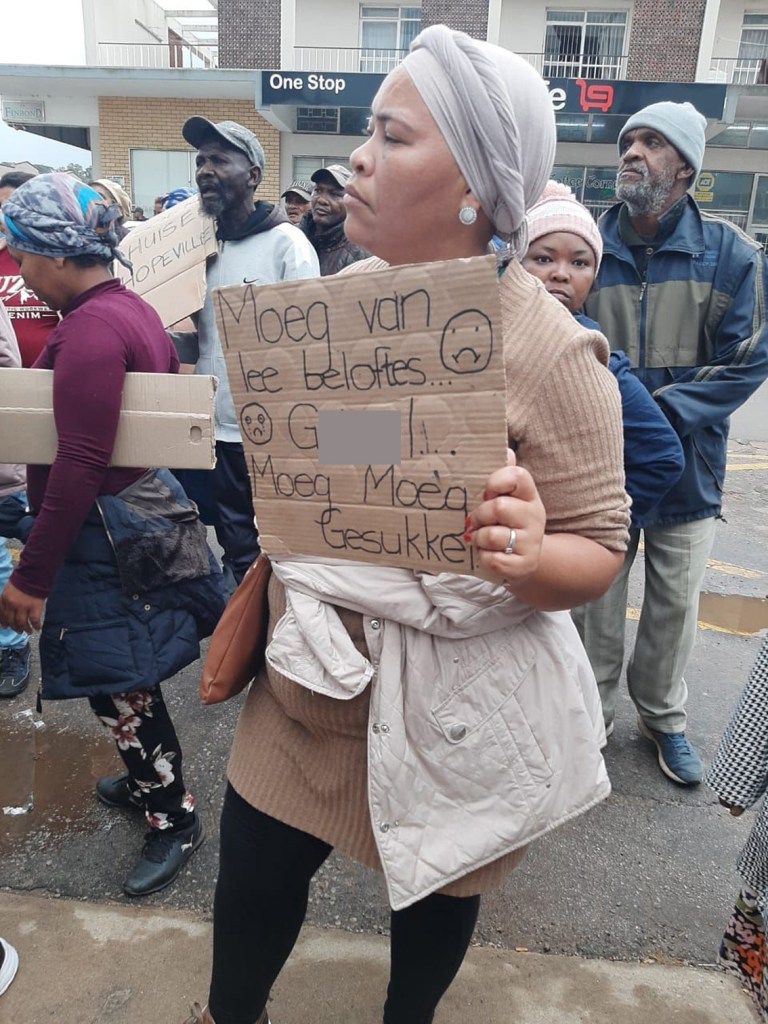 One Stop
FENBOND
HUISE
HOPEVILLE
Moeg van
lee beloftes...
G
Moeg Moeg
Gesukkel
ENIM